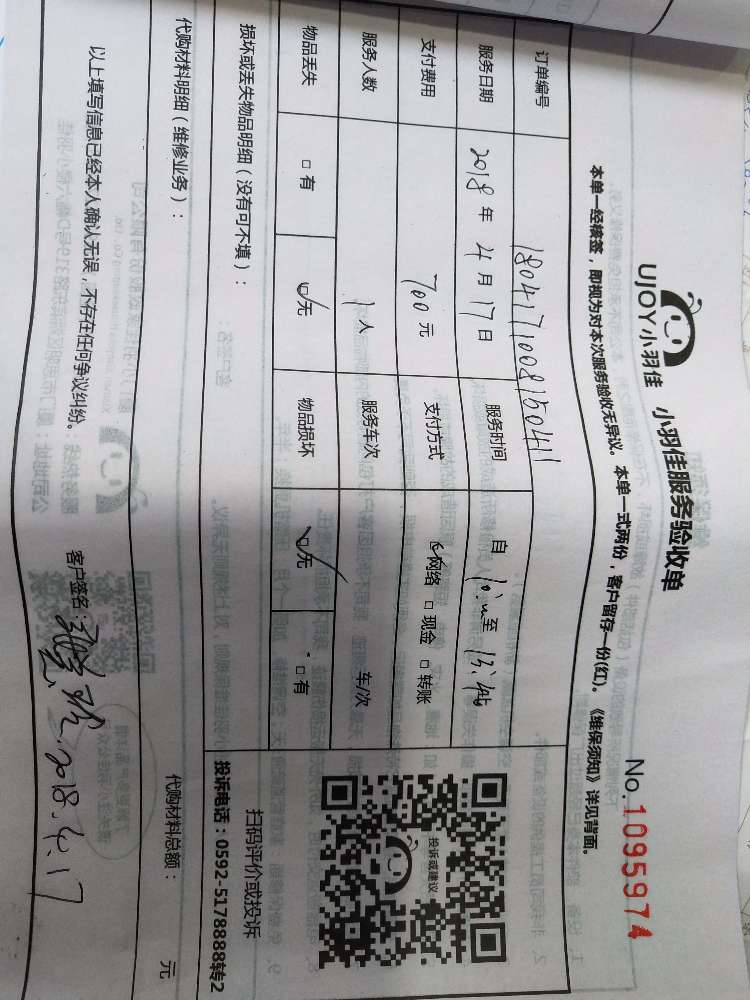 UJOY小羽佳 小羽佳服务验收单
No.1095974
本单一经核签，即视为对本次服务验收无异议。本单一式两份，客户留存一份(红)。《维保须知》详见背面。
订单编号 180417100815041
服务日期 2018年4月17日 服务时间 自 至
支付费用 700元 支付方式 网络 □现金 □转账
服务人数 1人 服务车次 车/次
物品丢失 □有 □无 物品损坏 □无 □有
投诉或建议
扫码评价或投诉
投诉电话：0592-5178888转2
损坏或丢失物品明细（没有可不填）：
代购材料明细（维修业务）： 代购材料总额： 元
以上填写信息已经本人确认无误，不存在任何争议纠纷。 客户签名： 2018.4.17